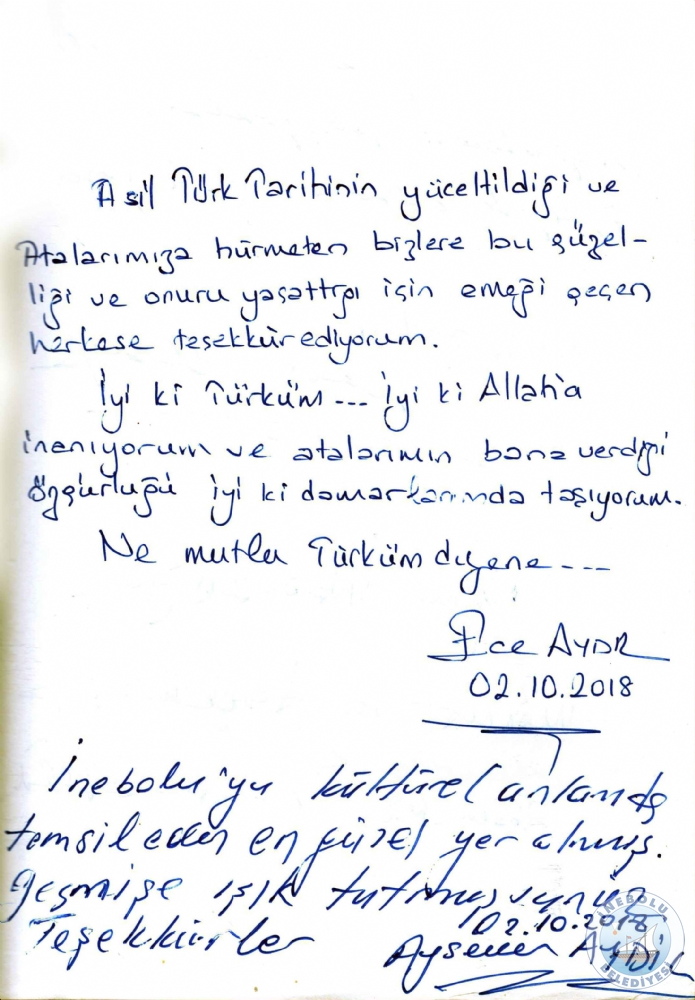 Asil Türk Tarihinin yüceltildiği ve
Atalarımıza hürmeten bizlere bu güzel-
liği ve onuru yaşattığı için emeği geçen
herkese teşekkür ediyorum.
İyi ki Türküm... İyi ki Allah'a
inanıyorum ve atalarımın bana verdiği
özgürlüğü iyi ki damarlarımda taşıyorum.
Ne mutlu Türküm diyene...
Ece AYDIR
02.10.2018
İnebolu'yu kültürel anlamda
temsil eden en güzel yer olmuş.
geçmişe ışık tutmuşsunuz
02.10.2018
Teşekkürler Ayşenur
İNEBOLU
BELEDİYESİ